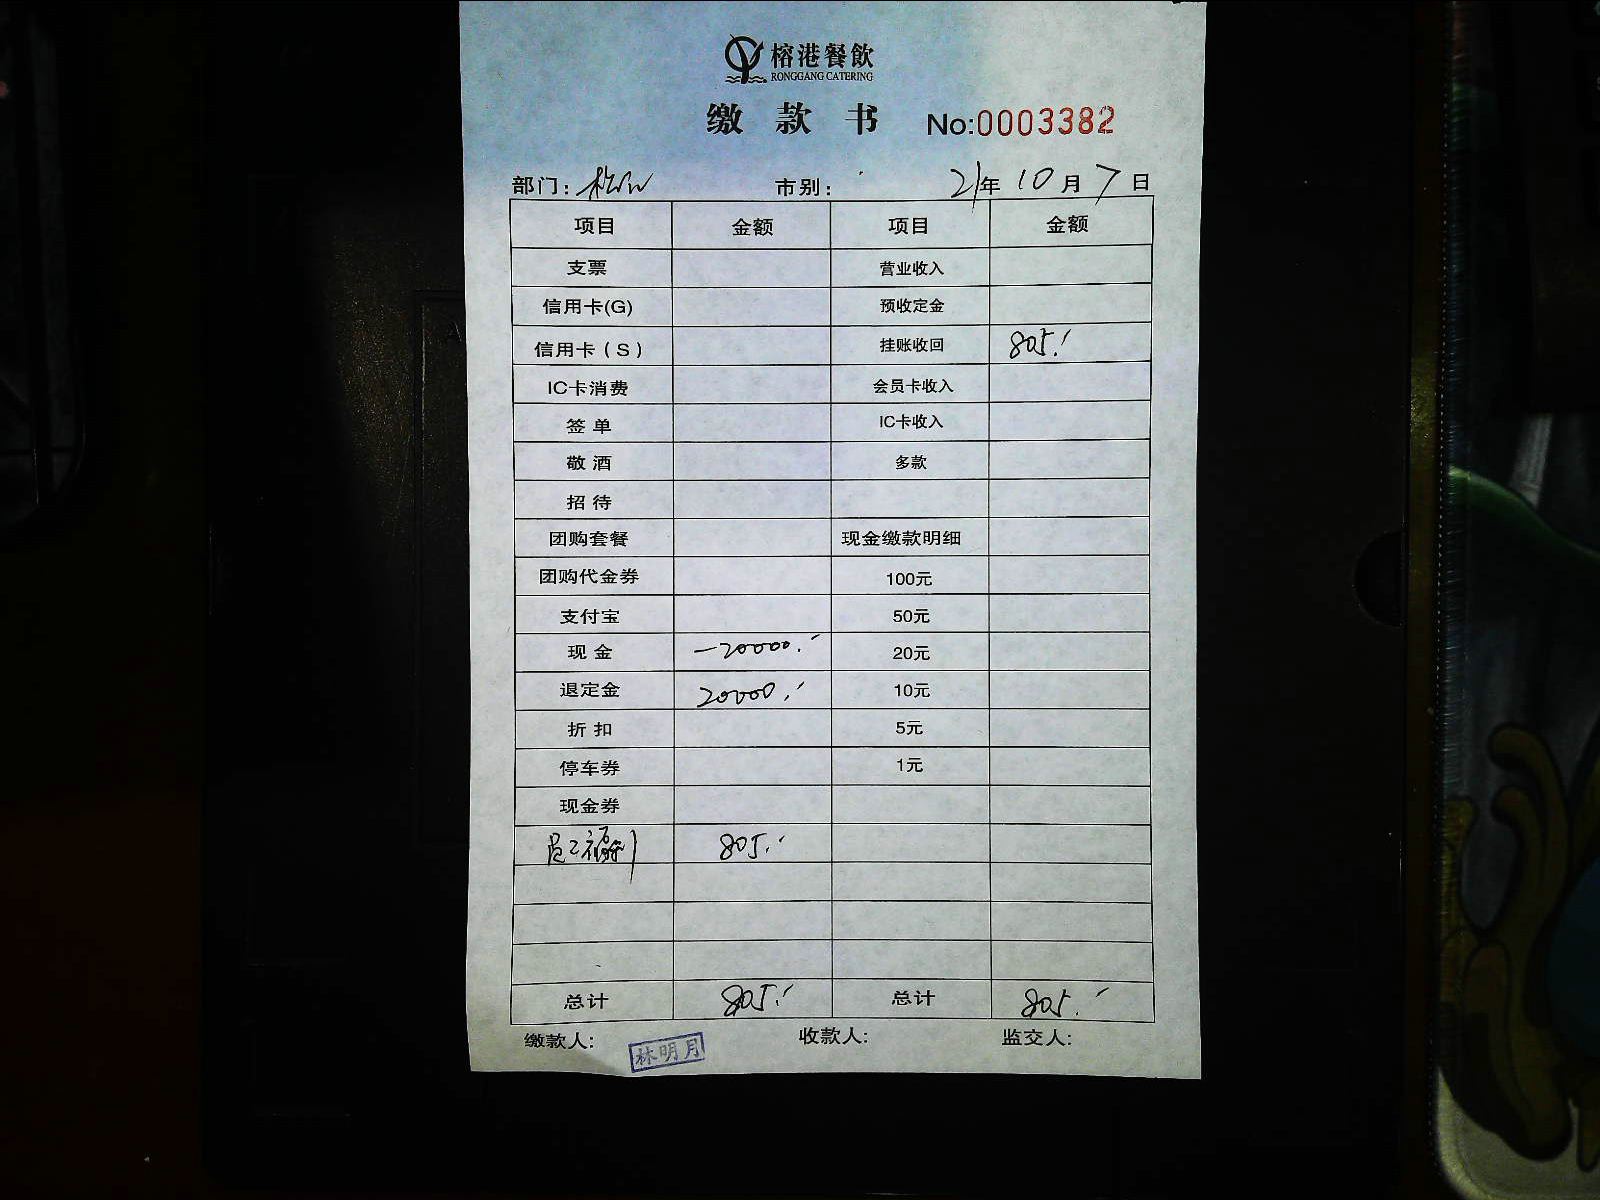 榕港餐飲
RONGGANG CATERING
缴 款 书 No:0003382
部门: 市别: 21年 10月 7日
项目 金额 项目 金额
支票 营业收入
信用卡(G) 预收定金
信用卡(S) 挂账收回 805.
IC卡消费 会员卡收入
签单 IC卡收入
敬酒 多款
招待
团购套餐 现金缴款明细
团购代金券 100元
支付宝 50元
现金 -20000. 20元
退定金 20000. 10元
折扣 5元
停车券 1元
现金券
员工福利 805.
总计 805. 总计 805.
缴款人: 林明月 收款人: 监交人: